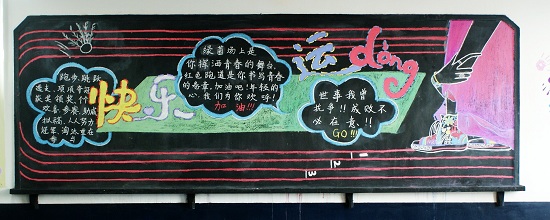 快乐
运dòng
跑步,跳跃
竞走,项项夺冠
获奖领奖,个个
欢喜.参赛,助威
拟稿,人人努力
冠军,淘汰重在
参与
绿茵场上是
你挥洒青春的舞台.
红色跑道是你书写青春
的卷章.加油吧!年轻的
心.我们为你欢呼!
加油!!!
世事我曾
抗争!!成败不
必在意!!
GO!!!
1
2
3